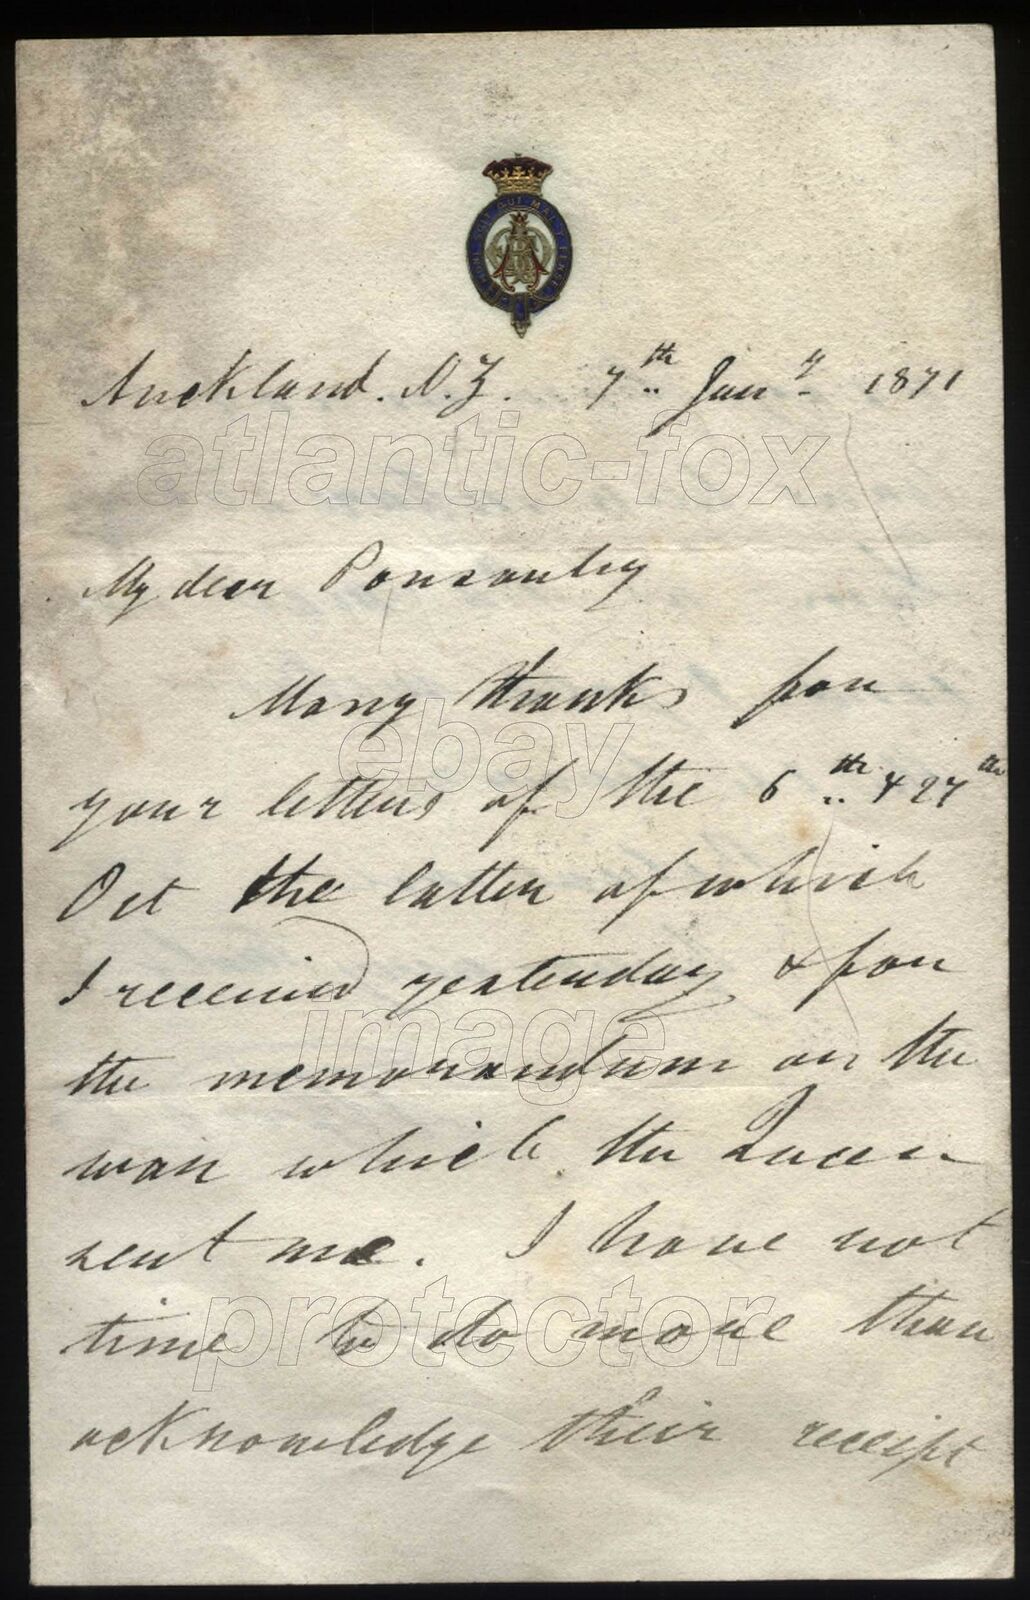 HONI SOIT QUI MAL Y PENSE
Auckland. N.Z. 7th Jany 1871
atlantic-fox
My dear Ponsonby
Many thanks for
ebay
your letters of the 6th & 27th
Oct the latter of which
I received yesterday & for
image
the memorandum on the
war which the Queen
sent me. I have not
protector
time to do more than
acknowledge their receipt